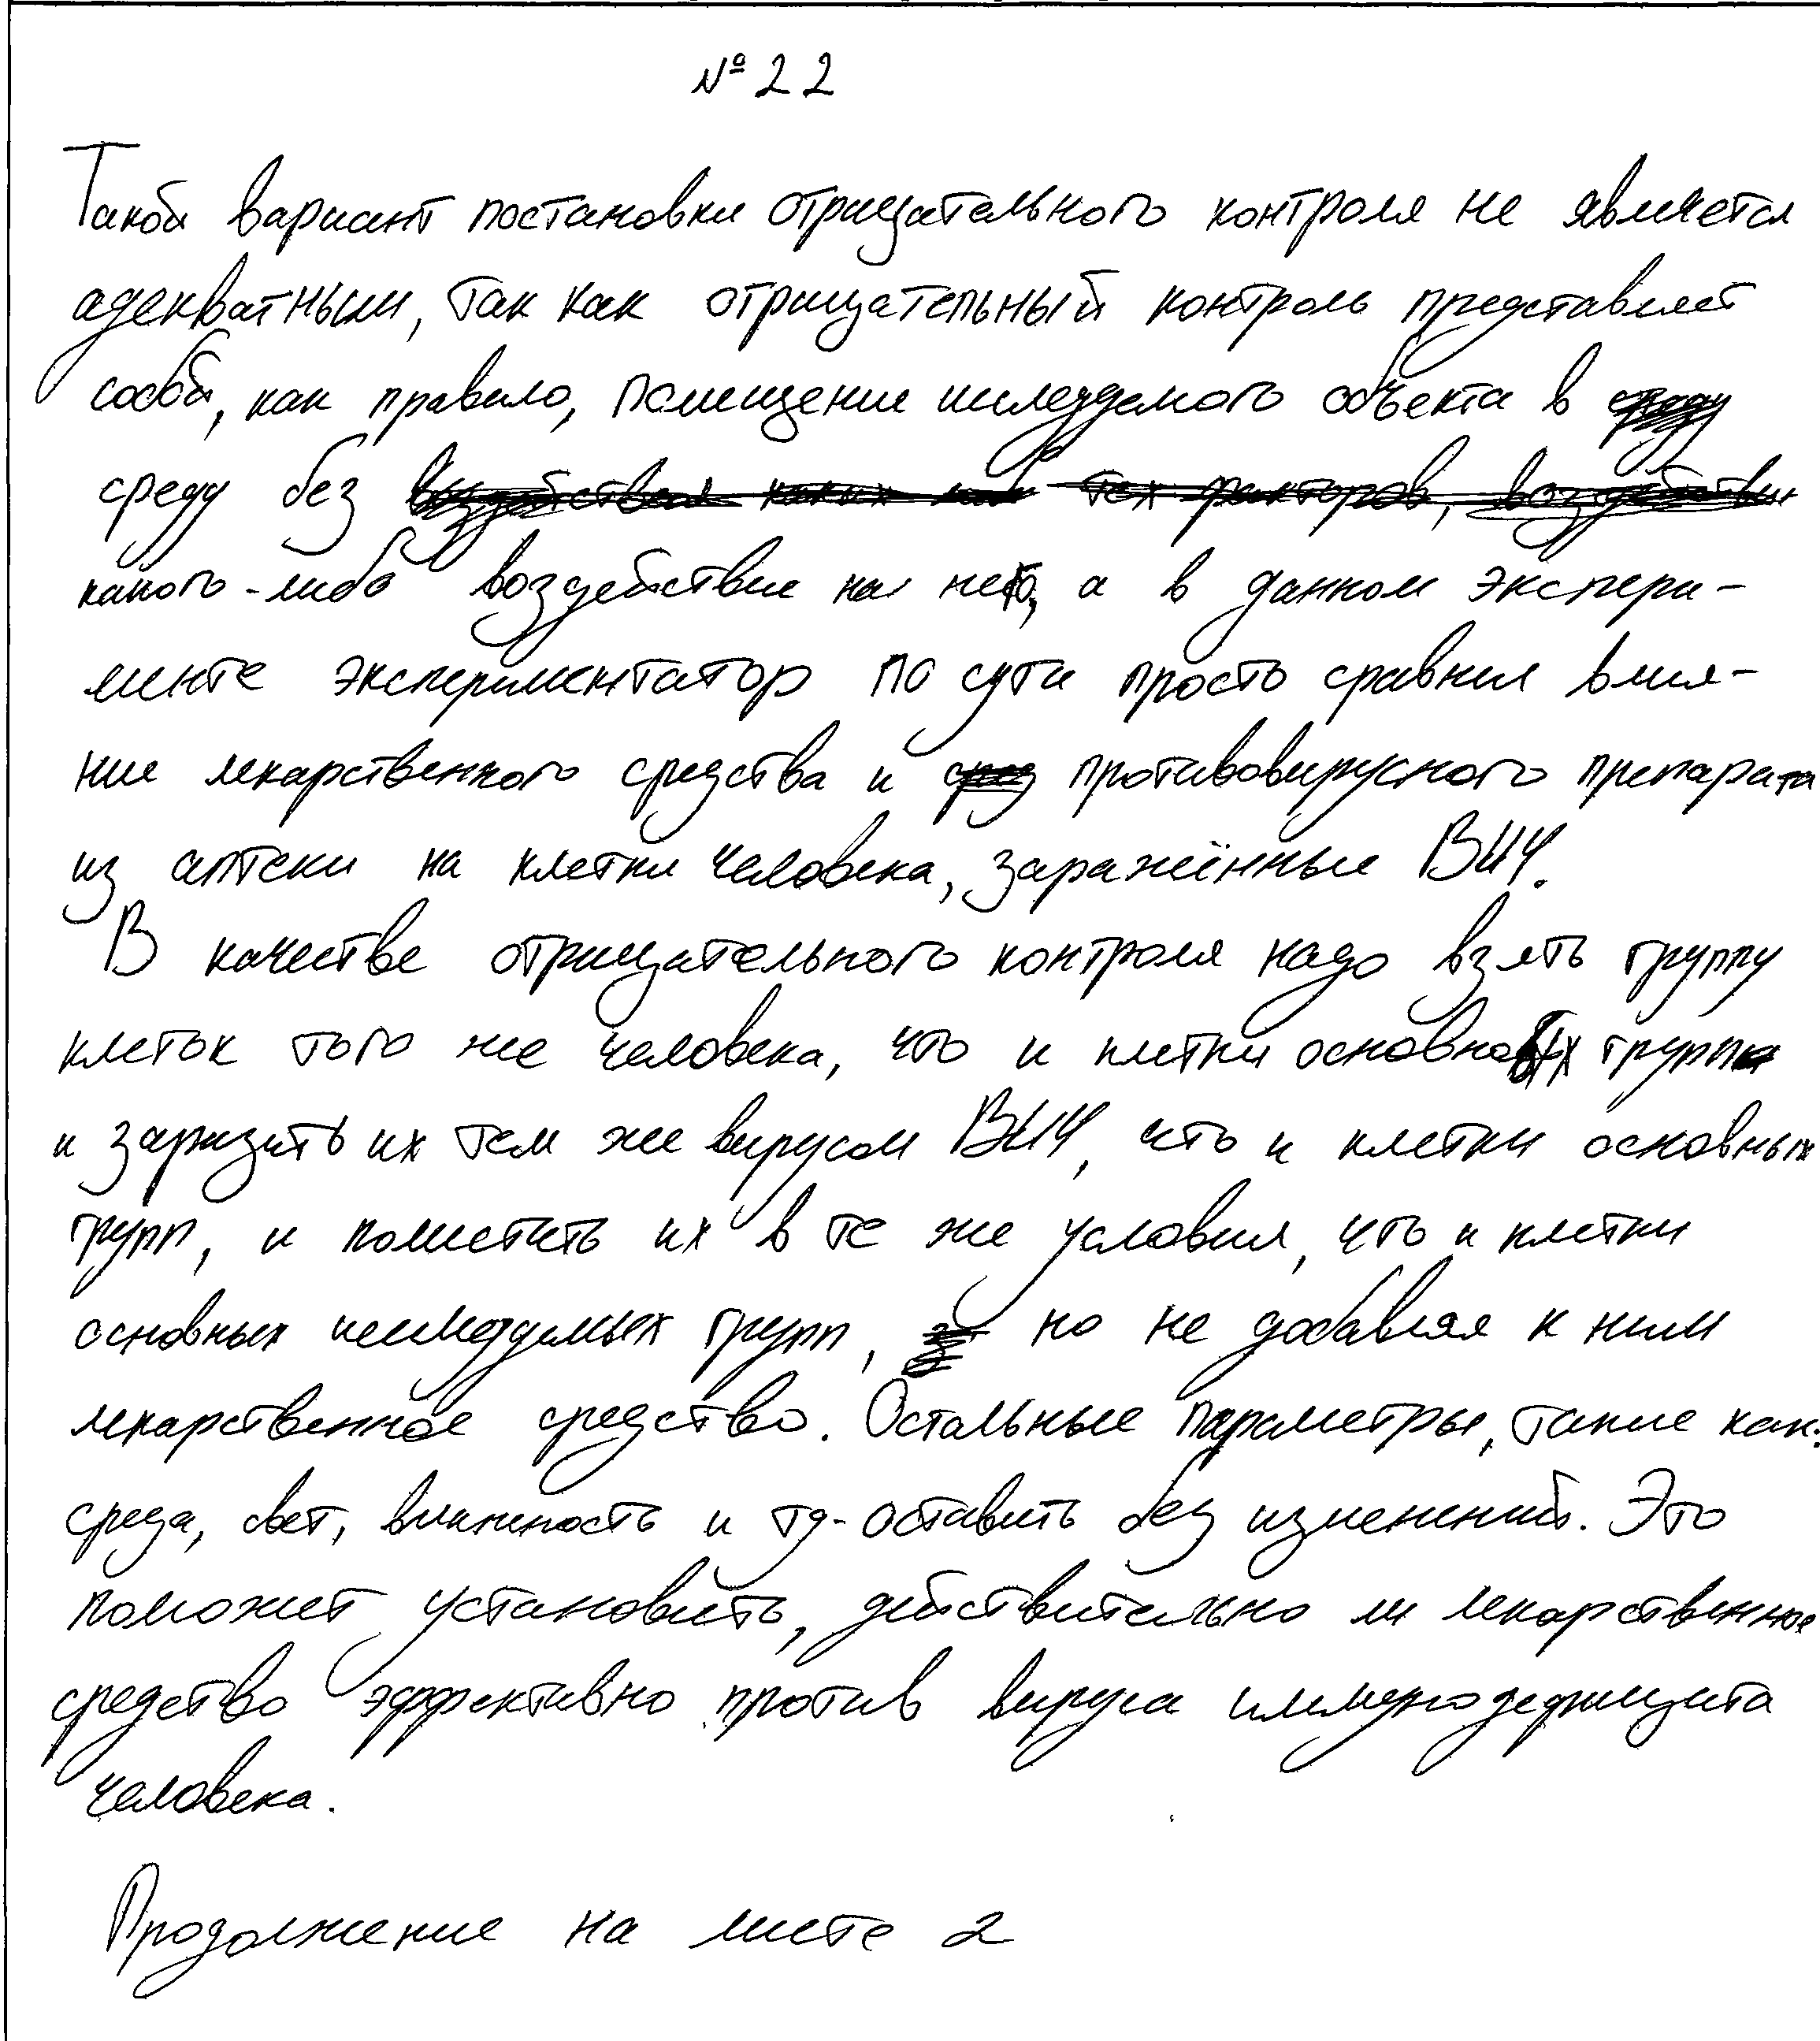 № 22
Такой вариант постановки отрицательного контроля не является
адекватным, так как отрицательный контроль представляет
собой, как правило, помещение исследуемого объекта в
среду без
какого-либо воздействия на него, а в данном экспери-
менте экспериментатор по сути просто сравнил влия-
ние лекарственного средства и противовирусного препарата
из аптеки на клетки человека, заражённые ВИЧ.
В качестве отрицательного контроля надо взять группу
клеток того же человека, что и клетки основных групп
и заразить их тем же вирусом ВИЧ, что и клетки основных
групп, и поместить их в те же условия, что и клетки
основных исследуемых групп, но не добавляя к ним
лекарственное средство. Остальные параметры, такие как:
среда, свет, влажность и тд- оставить без изменений. Это
поможет установить, действительно ли лекарственное
средство эффективно против вируса иммунодефицита
человека.
Продолжение на листе 2